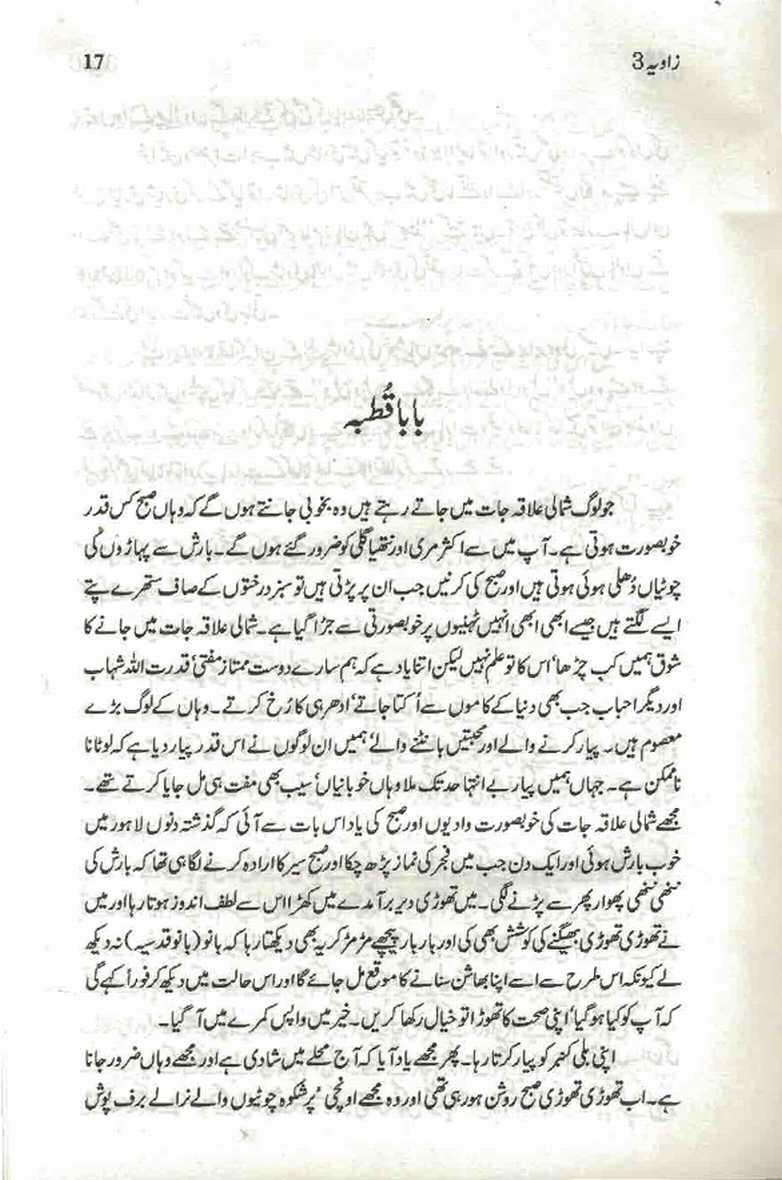 زاویہ 3
17
بابا قُطبہ
جو لوگ شمالی علاقہ جات میں جاتے رہتے ہیں وہ بخوبی جانتے ہوں گے کہ وہاں صبح کس قدر
خوبصورت ہوتی ہے۔ آپ میں سے اکثر مری اور نتھیا گلی کو ضرور گئے ہوں گے۔ بارش سے پہاڑوں کی
چوٹیاں دُھلی ہوئی ہوتی ہیں اور صبح کی کرنیں جب ان پر پڑتی ہیں تو سبز درختوں کے صاف ستھرے پتے
ایسے لگتے ہیں جیسے ابھی ابھی انہیں ٹہنیوں پر خوبصورتی سے جڑا گیا ہے۔ شمالی علاقہ جات میں جانے کا
شوق ہمیں کب چڑھا‘ اس کا تو علم نہیں لیکن اتنا یاد ہے کہ ہم سارے دوست ممتاز مفتی‘ قدرت اللہ شہاب
اور دیگر احباب جب بھی دنیا کے کاموں سے اُکتا جاتے‘ ادھر ہی کا رُخ کرتے۔ وہاں کے لوگ بڑے
معصوم ہیں۔ پیار کرنے والے اور محبتیں بانٹنے والے‘ ہمیں ان لوگوں نے اس قدر پیار دیا ہے کہ لوٹانا
ناممکن ہے۔ جہاں ہمیں پیار بے انتہا حد تک ملا وہاں خوبانیاں‘ سیب بھی مفت ہی مل جایا کرتے تھے۔
مجھے شمالی علاقہ جات کی خوبصورت وادیوں اور صبح کی یاد اس بات سے آئی کہ گذشتہ دنوں لاہور میں
خوب بارش ہوئی اور ایک دن جب میں فجر کی نماز پڑھ چکا اور صبح سیر کا ارادہ کرنے لگا ہی تھا کہ بارش کی
ننھی ننھی پھوار پھر سے پڑنے لگی۔ میں تھوڑی دیر برآمدے میں کھڑا اس سے لطف اندوز ہوتا رہا اور میں
نے تھوڑی تھوڑی بھیگنے کی کوشش بھی کی اور بار بار پیچھے مڑ مڑ کر یہ بھی دیکھتا رہا کہ بانو (بانو قدسیہ) نہ دیکھ
لے کیونکہ اس طرح سے اسے اپنا بھاشن سنانے کا موقع مل جائے گا اور اس حالت میں دیکھ کر فوراً کہے گی
کہ آپ کو کیا ہو گیا‘ اپنی صحت کا تھوڑا تو خیال رکھا کریں۔ خیر میں واپس کمرے میں آ گیا۔
اپنی بلی کنبر کو پیار کرتا رہا۔ پھر مجھے یاد آیا کہ آج محلے میں شادی ہے اور مجھے وہاں ضرور جانا
ہے۔ اب تھوڑی تھوڑی صبح روشن ہو رہی تھی اور وہ مجھے اونچی‘ پُرشکوہ چوٹیوں والے نرالے برف پوش